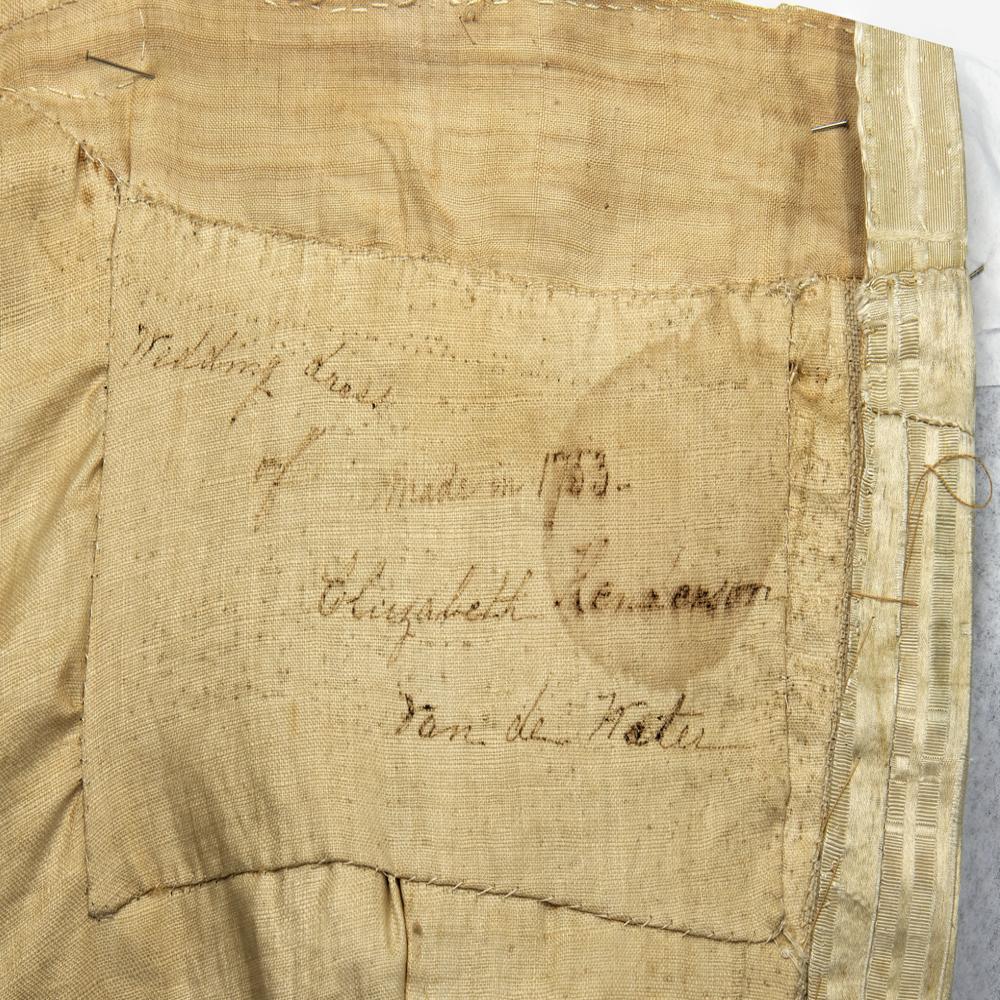 Wedding dress
of made in 1763.
Elizabeth Henderson
Van de Water